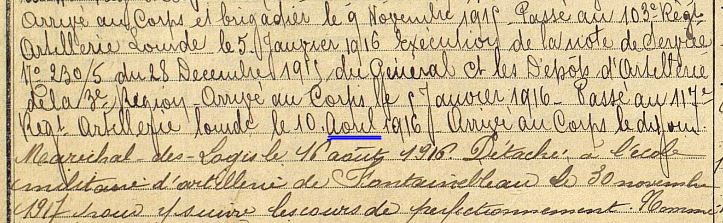 Arrivé au Corps et brigadier le 9 Novembre 1915 - Passé au 103e Régt
Artillerie Lourde le 5 Janvier 1916 Exécution de la note de Service
N° 230/5 du 28 Décembre 1915 du Général Ct les Dépôts d'Artillerie
de la 3e Région - Arrivé au Corps le 5 Janvier 1916 - Passé au 117e
Régt Artillerie lourde le 10 Aout 1916 Arrivé au Corps le dit jour.
Maréchal-des-Logis le 16 août 1916. Détaché à l'école
militaire d'artillerie de Fontainebleau le 30 novembre
1917 pour y suivre les cours de perfectionnement. Nommé